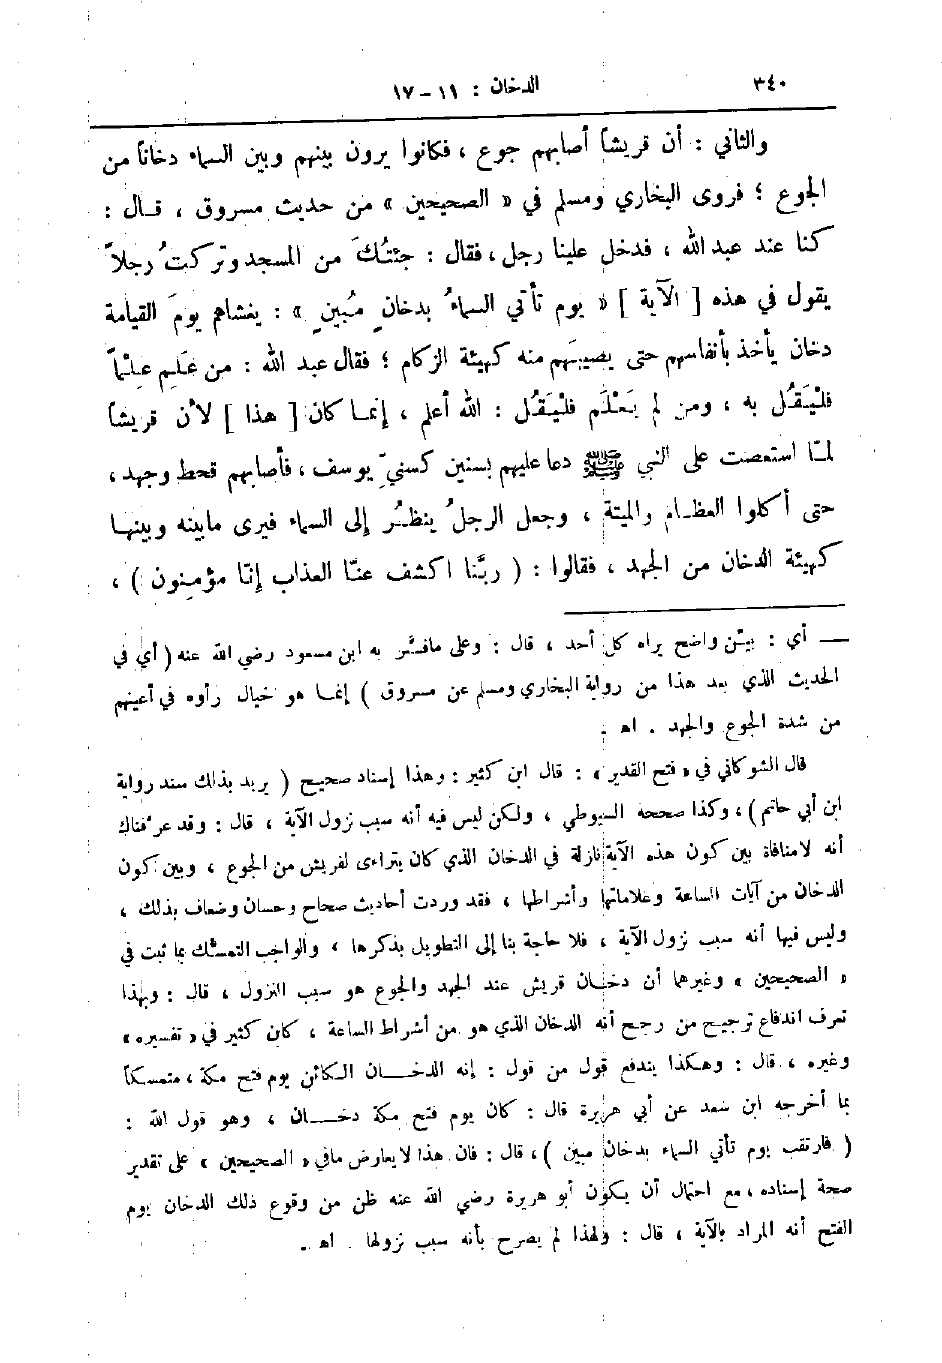 ٣٤٠ الدخان : ١١ - ١٧
والثاني : أن قريشاً أصابهم جوع ، فكانوا يرون بينهم وبين السماء دخاناً من
الجوع ؛ فروى البخاري ومسلم في « الصحيحين » من حديث مسروق ، قـال :
كنا عند عبد الله ، فدخل علينا رجل ، فقال : جئتُكَ من المسجد وتركتُ رجلاً
يقول في هذه [ الآية ] « يوم تأتي السماءُ بدخانٍ مُبينٍ » : يغشاهم يومَ القيامة
دخان يأخذ بأنفاسهم حتى يصيبَهم منه كهيئة الزكام ؛ فقال عبد الله : من عَلِم عِلْماً
فلْيَقُل به ، ومن لم يَعْلَم فليَقُل : الله أعلم ، إنمـا كان [ هذا ] لأن قريشاً
لمـّا استعصت على النبي ﷺ دعا عليهم بسنين كسنيِّ يوسف ، فأصابهم قحط وجهد ،
حتى أكلوا العظـام والميتة ، وجعل الرجلُ ينظـُر إلى السماء فيرى مابينه وبينهـا
كهيئة الدخان من الجهد ، فقالوا : ( ربَّنا اكشف عنّا العذاب إنّا مؤمنون ) ،
— أي : بيّن واضح يراه كل أحد ، قال : وعلى مافسَّر به ابن مسعود رضي الله عنه ( أي في
الحديث الذي بعد هذا من رواية البخاري ومسلم عن مسروق ) إنمـا هو خيال رأوه في أعينهم
من شدة الجوع والجهد . اهـ .
قال الشوكاني في « فتح القدير » : قال ابن كثير : وهذا إسناد صحيح ( يريد بذلك سند رواية
ابن أبي حاتم ) ، وكذا صححه السيوطي ، ولكن ليس فيه أنه سبب نزول الآية ، قال : وقد عرَّفناك
أنه لامنافاة بين كون هذه الآية نازلة في الدخان الذي كان يتراءى لقريش من الجوع ، وبين كون
الدخان من آيات الساعة وعلاماتها وأشراطها ، فقد وردت أحاديث صحاح وحسان وضعاف بذلك ،
وليس فيها أنه سبب نزول الآية ، فلا حاجة بنا إلى التطويل بذكرها ، والواجب التمسّك بما ثبت في
« الصحيحين » وغيرهما أن دخـان قريش عند الجهد والجوع هو سبب النزول ، قال : وبهذا
تعرف اندفاع ترجيح من رجح أنه الدخان الذي هو من أشراط الساعة ، كان كثير في « تفسيره »
وغيره ، قال : وهكذا يندفع قول من قول : إنه الدخـــان الـكائن يوم فتح مكة ، متمسكاً
بما أخرجه ابن سعد عن أبي هريرة قال : كان يوم فتح مكة دخـــان ، وهو قول الله :
( فارتقب يوم تأتي السماء بدخان مبين ) ، قال : فان هذا لايعارض مافي « الصحيحين » على تقدير
صحة إسناده ، مع احتمال أن يكون أبو هريرة رضي الله عنه ظن من وقوع ذلك الدخان يوم
الفتح أنه المراد بالآية ، قال : ولهذا لم يصرح بأنه سبب نزولها . اهـ .